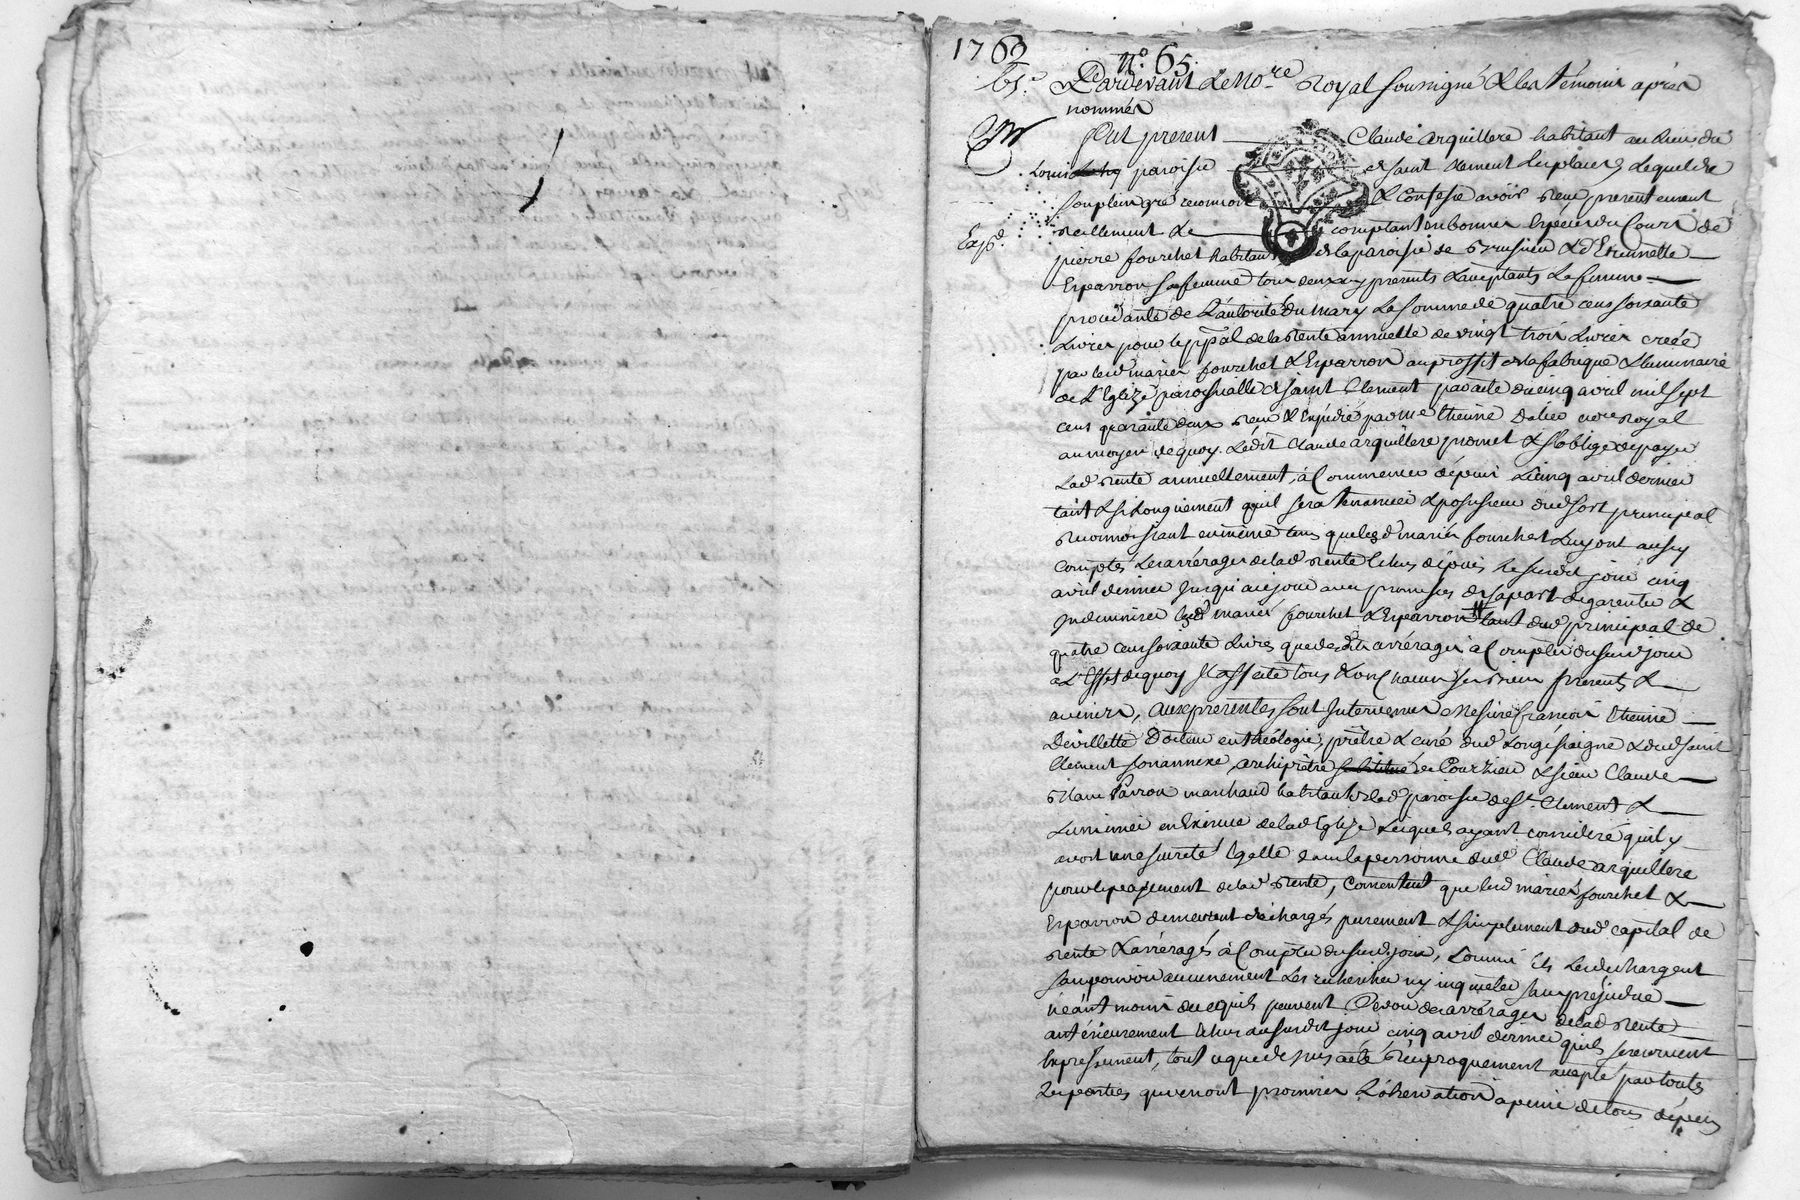 1762
N°. 65.
bs.e Pardevant Le No.re Royal soussigné & les témoins après
nommés
fut present Claude arquillere habitant au Lieu du
paroisse de saint Clement les places, Lequel de
son plein gré reconnoit & Confesse avoir Reçu presentement
Reellement & comptant en bonnes Especes du Cours de
Exp.d
pierre fourchet habitant de la paroisse de Brusieu & d'Etiennette
Esparron sa femme tous deux icy presents & acceptants La femme
procedante de L'autorité du mary La somme de quatre cens soixante
Livres pour le ppal de la Rente annuelle de vingt trois Livres creée
par lesd mariés fourchet & Esparron au proffit de la fabrique & Luminaire
de L'Eglize paroissialle de saint Clement par acte du cinq avril mil sept
cens quarante deux Reçu & Expedié par me Etienne Dalieu no.re Royal
au moyen de quoy Ledit Claude arquillere promet & s'oblige de payer
Lad Rente annuellement, à Commencer depuis Le cinq avril dernier
tant & si Longuement qu'il sera tenancier & possesseur dud sort principal
Reconnoissant en même tems que lesd mariés fourchet Luy ont aussy
comptés Les arrérages de lad Rente Echus depuis le susdit jour cinq
avril dernier jusqu'à ce jour avec promesses de sa part de garentir &
Indemniser lesd mariés fourchet & Esparron tant dud principal de
quatre cens soixante Livres que desdits arrérages à Compter dususd jour
a L'Effet de quoy il affecte tous & un Chacun ses Biens presents &
avenirs, aux presentes sont Intervenus Messire françois Etienne
Devillette Docteur en théologie, prêtre & curé dud Longessaigne & dud saint
Clement son annexe, archiprêtre de Courzieu & sieur Claude
marchand habitant de lad paroisse de St. Clement &
Luminier en Exercice de lad Eglize Lesquels ayant consideré qu'il y
avoit une sureté Egalle dans la personne dud Claude arquillere
pour le payement de lad Rente, Consentent que lesd mariés fourchet &
Esparron demeurent déchargés purement & simplement dud capital de
rente & arrérages à Compter dususd. jour, Comme ils les dechargent
sans pouvoir aucunement Les rechercher ny inquieter sans prejudice
néant moins de ce qu'ils peuvent Devoir des arrérages de lad Rente
antérieurement Echus au susdit jour cinq avril dernier qu'ils se reservent
Expressement, tout ce que dessus a été Réciproquement accepté par toutes
Les parties qui en ont promises L'observation à peine de tous dépens